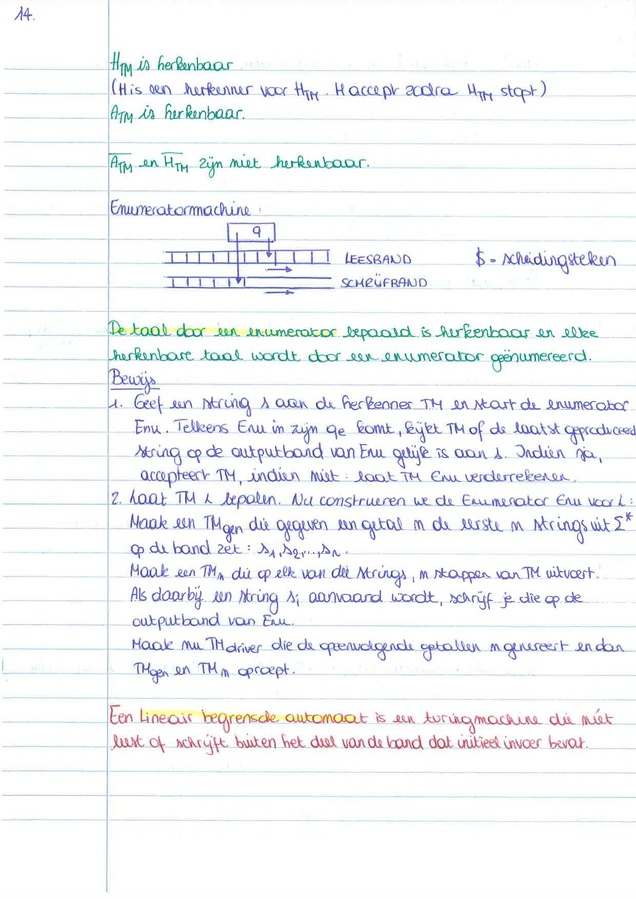 14.
H_TM is herkenbaar
(H is een herkenner voor H_TM. H accept zodra H_TM stopt)
A_TM is herkenbaar.
A̅_TM en H̅_TM zijn niet herkenbaar.
Enumeratormachine:
q
LEESBAND
$ = scheidingsteken
SCHRIJFBAND
De taal door een enumerator bepaald is herkenbaar en elke
herkenbare taal wordt door een enumerator geënumereerd.
Bewijs
1. Geef een string s aan de herkenner TM en start de enumerator
Enu. Telkens Enu in zijn qe komt, kijkt TM of de laatst geproduceerd
string op de outputband van Enu gelijk is aan s. Indien ja,
accepteert TM, indien niet: laat TM Enu verderrekenen.
2. Laat TM L bepalen. Nu construeren we de Enumerator Enu voor L:
Maak een TM_gen die gegeven een getal n de eerste n strings uit Σ*
op de band zet: s₁, s₂, ..., sₙ.
Maak een TMₙ die op elk van die strings, n stappen van TM uitvoert.
Als daarbij een string sᵢ aanvaard wordt, schrijf je die op de
outputband van Enu.
Maak nu TM_driver die de opeenvolgende getallen n genereert en dan
TM_gen en TMₙ oproept.
Een Lineair begrensde automaat is een turingmachine die niet
leest of schrijft buiten het deel van de band dat initieel invoer bevat.